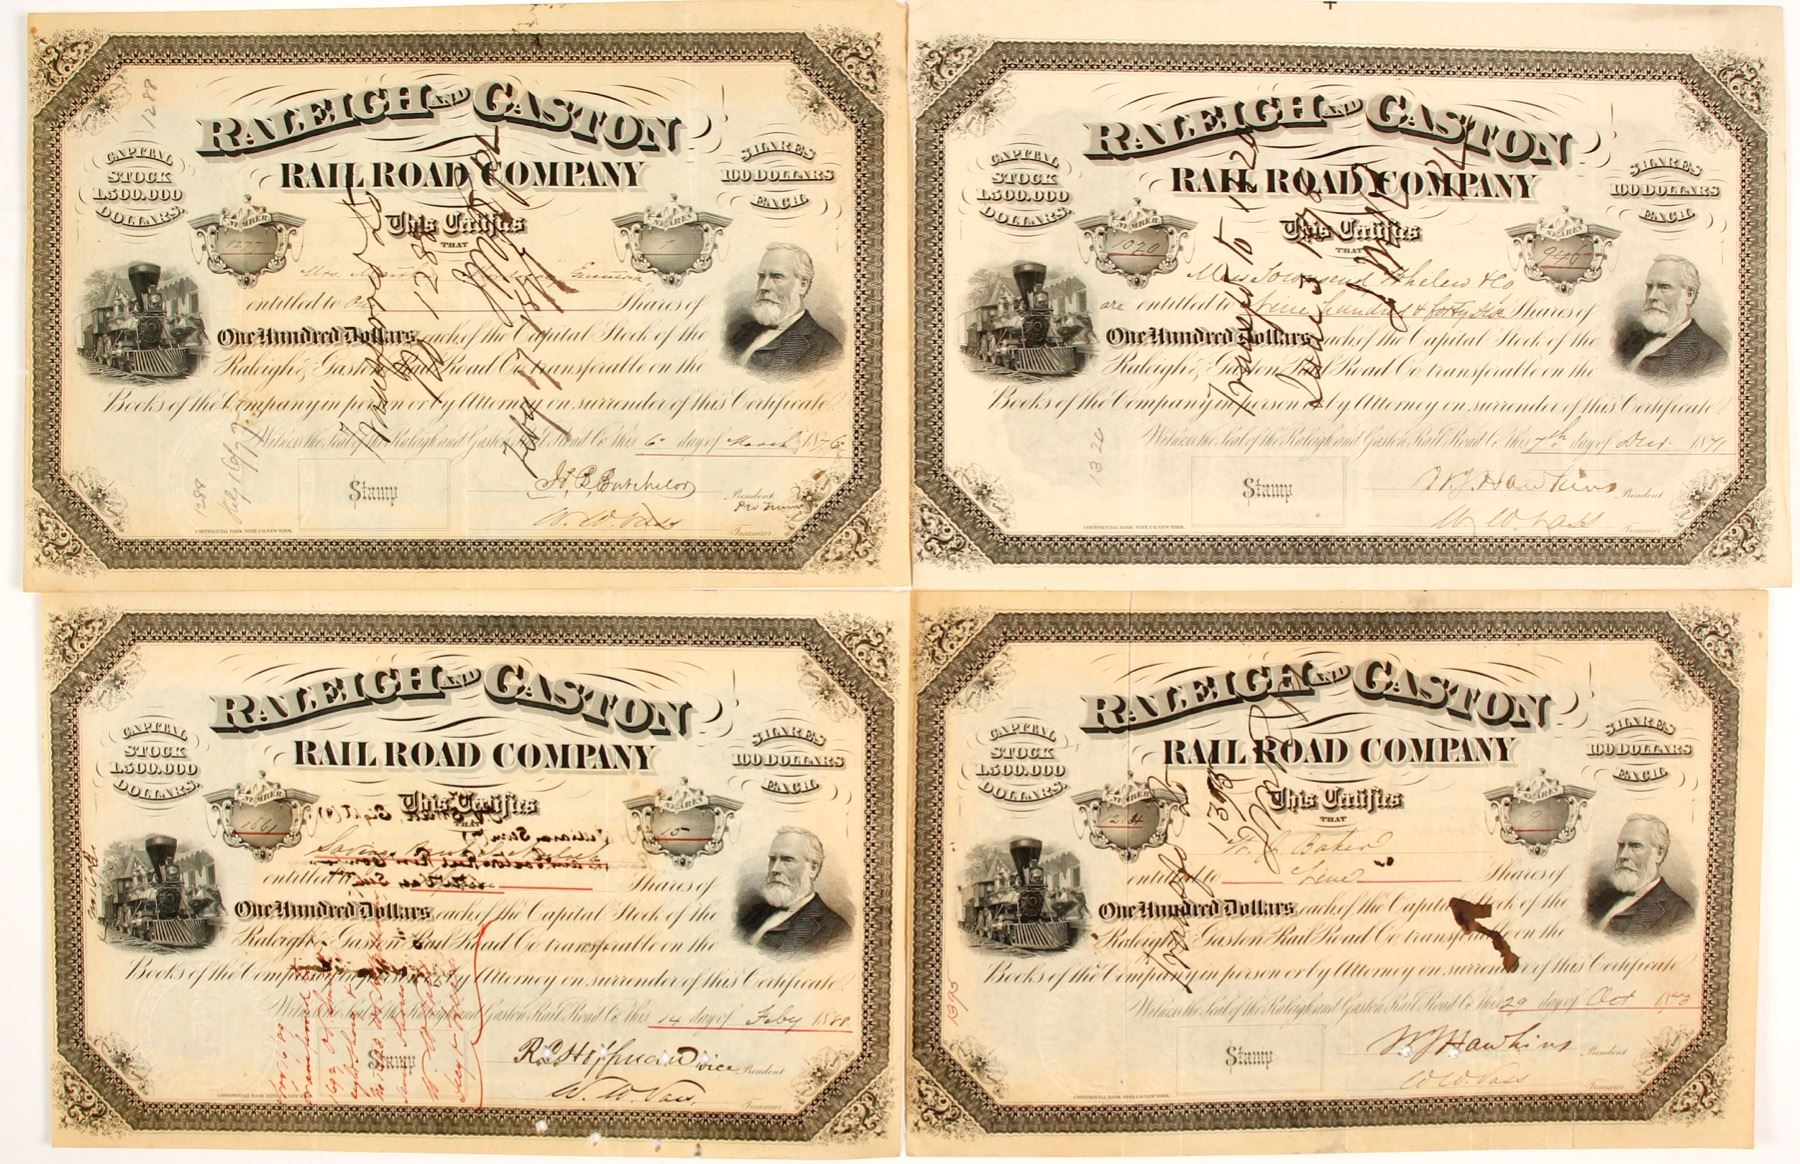 RALEIGH AND GASTON
RAIL ROAD COMPANY
CAPITAL
STOCK
1.500.000
DOLLARS.
SHARES
100 DOLLARS
EACH.
1288
NUMBER
1277
SHARES
1
This Certifies
THAT
Mrs.
entitled to One Shares of
One Hundred Dollars each of the Capital Stock of the
Raleigh & Gaston Rail Road Co. transferable on the
Books of the Company in person or by Attorney on surrender of this Certificate.
Witness the Seal of the Raleigh and Gaston Rail Road Co. this 6 day of March 1876
Transferred to
No 1288
Feby 17 1877
1288
Stamp
Jo. B. Batchelor
President
Pro Tem
W. W. Vass
Treasurer
CONTINENTAL BANK NOTE CO. NEW YORK.
RALEIGH AND GASTON
RAIL ROAD COMPANY
CAPITAL
STOCK
1.500.000
DOLLARS.
SHARES
100 DOLLARS
EACH.
NUMBER
1020
SHARES
946
This Certifies
THAT
Mess Townsend Whelen & Co
are entitled to Nine hundred & forty six Shares of
One Hundred Dollars each of the Capital Stock of the
Raleigh & Gaston Rail Road Co. transferable on the
Books of the Company in person or by Attorney on surrender of this Certificate.
Witness the Seal of the Raleigh and Gaston Rail Road Co. this 7th day of Decr 1871
1320
Stamp
W J Hawkins
President
W. W. Vass
Treasurer
CONTINENTAL BANK NOTE CO. NEW YORK.
RALEIGH AND GASTON
RAIL ROAD COMPANY
CAPITAL
STOCK
1.500.000
DOLLARS.
SHARES
100 DOLLARS
EACH.
NUMBER
1661
SHARES
10
This Certifies
THAT
entitled to Shares of
One Hundred Dollars each of the Capital Stock of the
Raleigh & Gaston Rail Road Co. transferable on the
Books of the Company in person or by Attorney on surrender of this Certificate.
Witness the Seal of the Raleigh and Gaston Rail Road Co. this 14 day of Feby 1888
Stamp
R. C. Hoffman vice President
W. W. Vass
Treasurer
CONTINENTAL BANK NOTE CO. NEW YORK.
RALEIGH AND GASTON
RAIL ROAD COMPANY
CAPITAL
STOCK
1.500.000
DOLLARS.
SHARES
100 DOLLARS
EACH.
NUMBER
SHARES
9
This Certifies
THAT
Baker
entitled to Nine Shares of
One Hundred Dollars each of the Capital Stock of the
Raleigh & Gaston Rail Road Co. transferable on the
Books of the Company in person or by Attorney on surrender of this Certificate.
Witness the Seal of the Raleigh and Gaston Rail Road Co. this 29 day of Oct 1873
1395
Stamp
W J Hawkins
President
W. W. Vass
Treasurer
CONTINENTAL BANK NOTE CO. NEW YORK.